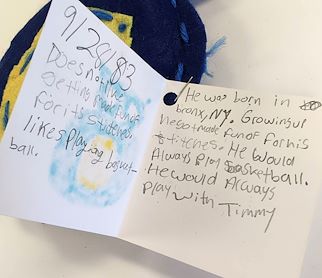 9/28/83
Does not like
getting made fun of
for its stitches.
likes playing basket-
ball.
He was born in
bronx, NY. Growing up
he got made fun of for his
stitches. He would
Always Play Basketball.
He would Always
Play with Timmy